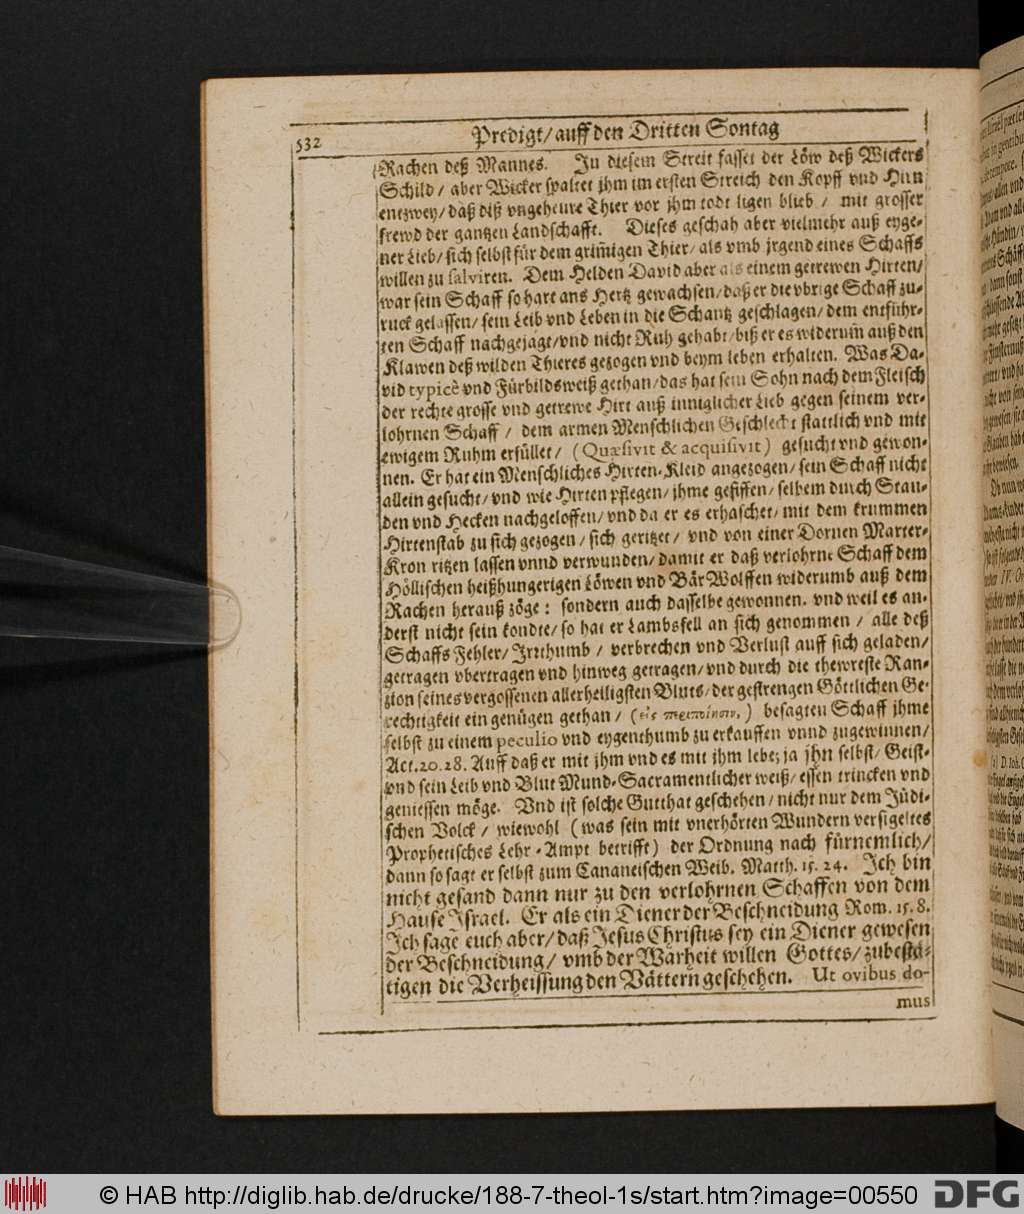 532
Predigt/ auff den Dritten Sontag
Rachen deß Mannes. In diesem Streit fasset der Löw deß Wickers
Schild/ aber Wicker spaltet jhm im ersten Streich den Kopff vnd Hirn
entzwey/ daß diß vngeheure Thier vor jhm todt ligen blieb/ mit grosser
frewd der gantzen Landschafft. Dieses geschah aber vielmehr auß eyge-
ner Lieb/ sich selbst für dem grim̃igen Thier/ als vmb jrgend eines Schaffs
willen zu salviren. Dem Helden David aber als einem getrewen Hirten/
war sein Schaff so hart ans Hertz gewachsen/ daß er die vbrige Schaff zu-
ruck gelassen/ sein Leib vnd Leben in die Schantz geschlagen/ dem entführ-
ten Schaff nachgejagt/ vnd nicht Ruh gehabt/ biß er es widerum̃ auß den
Klawen deß wilden Thieres gezogen vnd beym leben erhalten. Was Da-
vid typicè vnd Fürbildsweiß gethan/ das hat sein Sohn nach dem Fleisch
der rechte grosse vnd getrewe Hirt auß inniglicher Lieb gegen seinem ver-
lohrnen Schaff/ dem armen Menschlichen Geschlecht stattlich vnd mit
ewigem Ruhm erfüllet/ (Quæsivit & acquisivit) gesucht vnd gewon-
nen. Er hat ein Menschliches Hirten-Kleid angezogen/ sein Schaff nicht
allein gesucht/ vnd wie Hirten pflegen/ jhme gefiffen/ selbem durch Stau-
den vnd Hecken nachgeloffen/ vnd da er es erhaschet/ mit dem krummen
Hirtenstab zu sich gezogen/ sich geritzet/ vnd von einer Dornen Marter-
Kron ritzen lassen vnnd verwunden/ damit er daß verlohrne Schaff dem
Höllischen heißhungerigen Löwen vnd Bär Wolffen widerumb auß dem
Rachen herauß zöge: sondern auch dasselbe gewonnen. vnd weil es an-
derst nicht sein kondte/ so hat er Lambsfell an sich genommen/ alle deß
Schaffs Fehler/ Irrthumb/ verbrechen vnd Verlust auff sich geladen/
getragen vbertragen vnd hinweg getragen/ vnd durch die thewreste Ran-
zion seines vergossenen allerheiligsten Bluts/ der gestrengen Göttlichen Ge-
rechtigkeit ein genügen gethan/ (εἰς περιποίησιν,) besagten Schaff jhme
selbst zu einem peculio vnd eygenthumb zu erkauffen vnnd zugewinnen/
Act. 20. 28. Auff daß er mit jhm vnd es mit jhm lebe; ja jhn selbst/ Geist-
vnd sein Leib vnd Blut Mund-Sacramentlicher weiß/ essen trincken vnd
geniessen möge. Vnd ist solche Gutthat geschehen/ nicht nur dem Jüdi-
schen Volck/ wiewohl (was sein mit vnerhörten Wundern versigeltes
Prophetisches Lehr-Ampt betrifft) der Ordnung nach fürnemlich/
dann so sagt er selbst zum Cananeischen Weib. Matth. 15. 24. Ich bin
nicht gesand dann nur zu den verlohrnen Schaffen von dem
Hause Israel. Er als ein Diener der Beschneidung Rom. 15. 8.
Ich sage euch aber/ daß Jesus Christus sey ein Diener gewesen
der Beschneidung/ vmb der Warheit willen Gottes/ zubestä-
tigen die Verheissung den Vättern geschehen. Ut ovibus do-
mus
© HAB http://diglib.hab.de/drucke/188-7-theol-1s/start.htm?image=00550
DFG